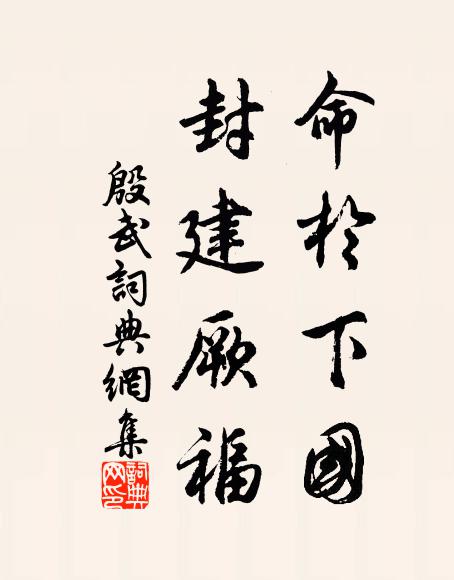 命於下國
封建厥福
殷武詞典網集
詞典
网印